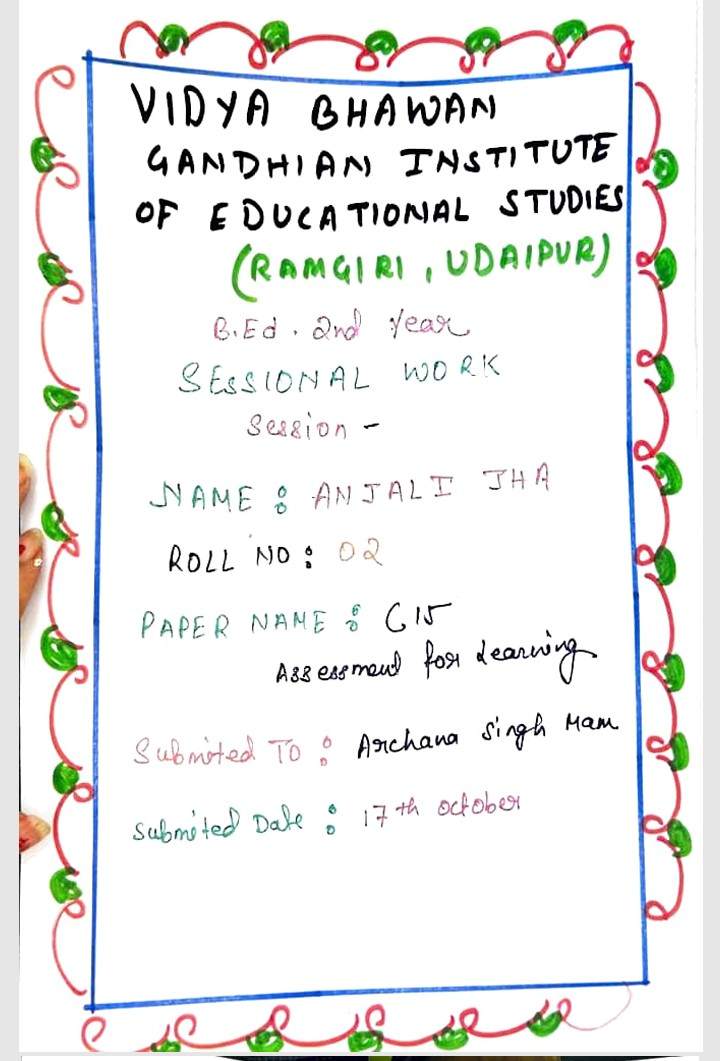 VIDYA BHAWAN
GANDHIAN INSTITUTE
OF EDUCATIONAL STUDIES
(RAMGIRI, UDAIPUR)
B.Ed. 2nd Year
SESSIONAL WORK
Session -
NAME : ANJALI JHA
ROLL NO : 02
PAPER NAME : C15
Assessment for Learning
Submited To : Archana Singh Mam
Submited Date : 17th october